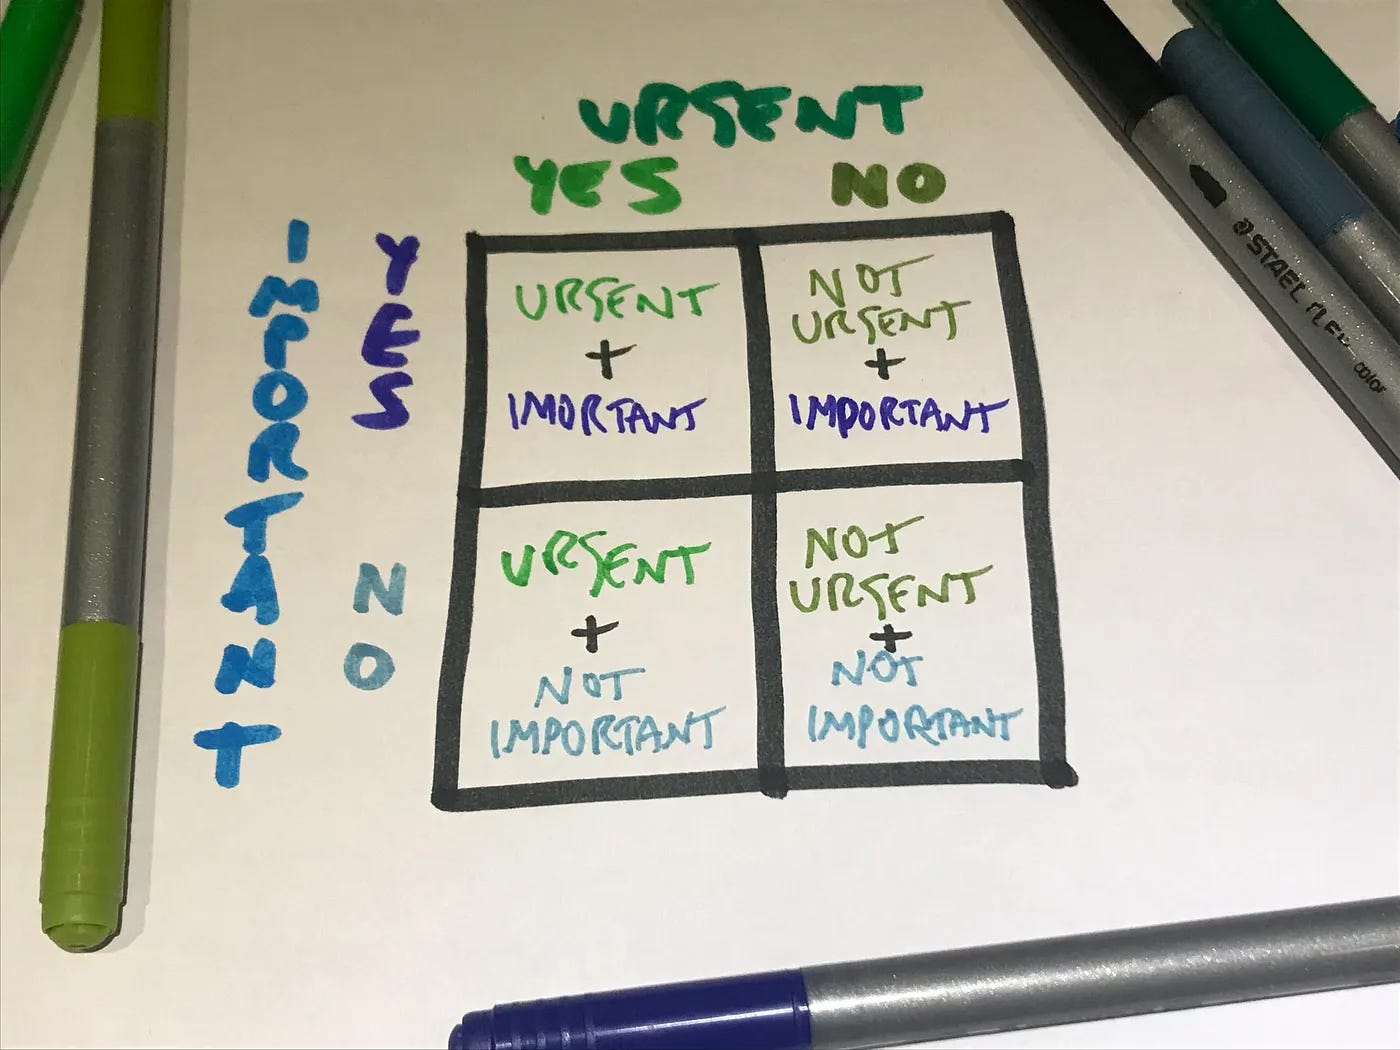 URGENT
YES NO
IMPORTANT
YES
NO
URGENT
+
IMORTANT
NOT
URGENT
+
IMPORTANT
URGENT
+
NOT
IMPORTANT
NOT
URGENT
+
NOT
IMPORTANT
STAEDTLER
color